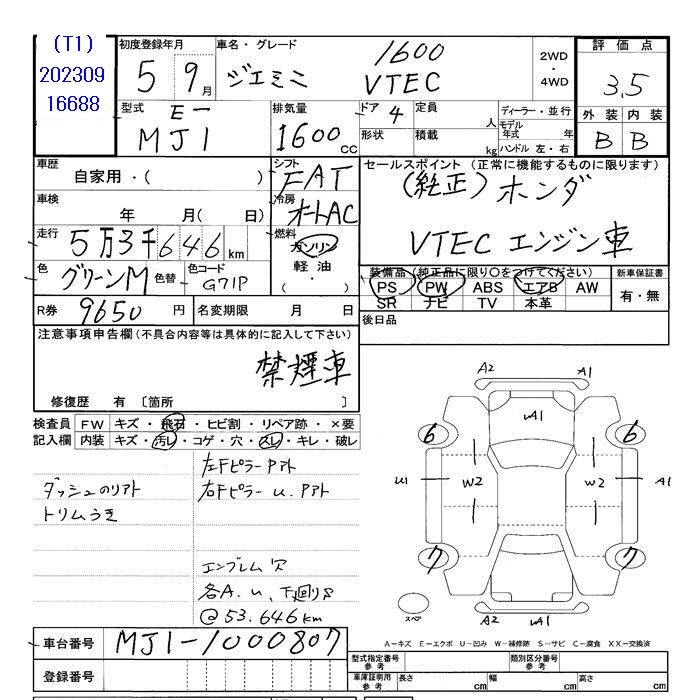 (T1)
202309
16688
初度登録年月
5 9月
車名・グレード
ジエミニ
1600
VTEC
2WD
・
4WD
評価点
3,5
外装 内装
B B
型式
E-
MJ1
排気量
1600 cc
ドア 4
定員 人
ディーラー・並行
形状
積載 kg
モデル年式 年
ハンドル 左・右
車歴
自家用・( )
シフト
FAT
セールスポイント (正常に機能するものに限ります)
(純正) ホンダ
VTEC エンジン車
車検
年 月( 日)
冷房
オートAC
走行
5万3千646km
燃料
ガソリン
軽油
・( )
色
グリーンM
色替
色コード
G71P
装備品 (純正品に限り〇をつけてください)
PS PW ABS エアB AW
SR ナビ TV 本革
新車保証書
有・無
R券 9650 円
名変期限 月 日
後日品
注意事項申告欄(不具合内容等は具体的に記入して下さい)
禁煙車
修復歴 有 〔箇所 〕
検査員
記入欄
FW キズ・飛石・ヒビ割・リペア跡・×要
内装 キズ・汚レ・コゲ・穴・スレ・キレ・破レ
左Fピラー Pアト
ダッシュのリアト
右Fピラー u. Pアト
トリムうき
エンブレム穴
各A. u、下廻りS
@53.646km
A2 A1
uA1
6 6
U1 W2 W2 A1
7 7
スペア
A2 uA1
A-キズ E-エクボ U-凹み W-補修跡 S-サビ C-腐食 XX-交換済
車台番号 MJ1-1000807
登録番号
型式指定番号
参考
類別区分番号
参考
車庫証明用
参考
長さ cm
幅 cm
高さ cm